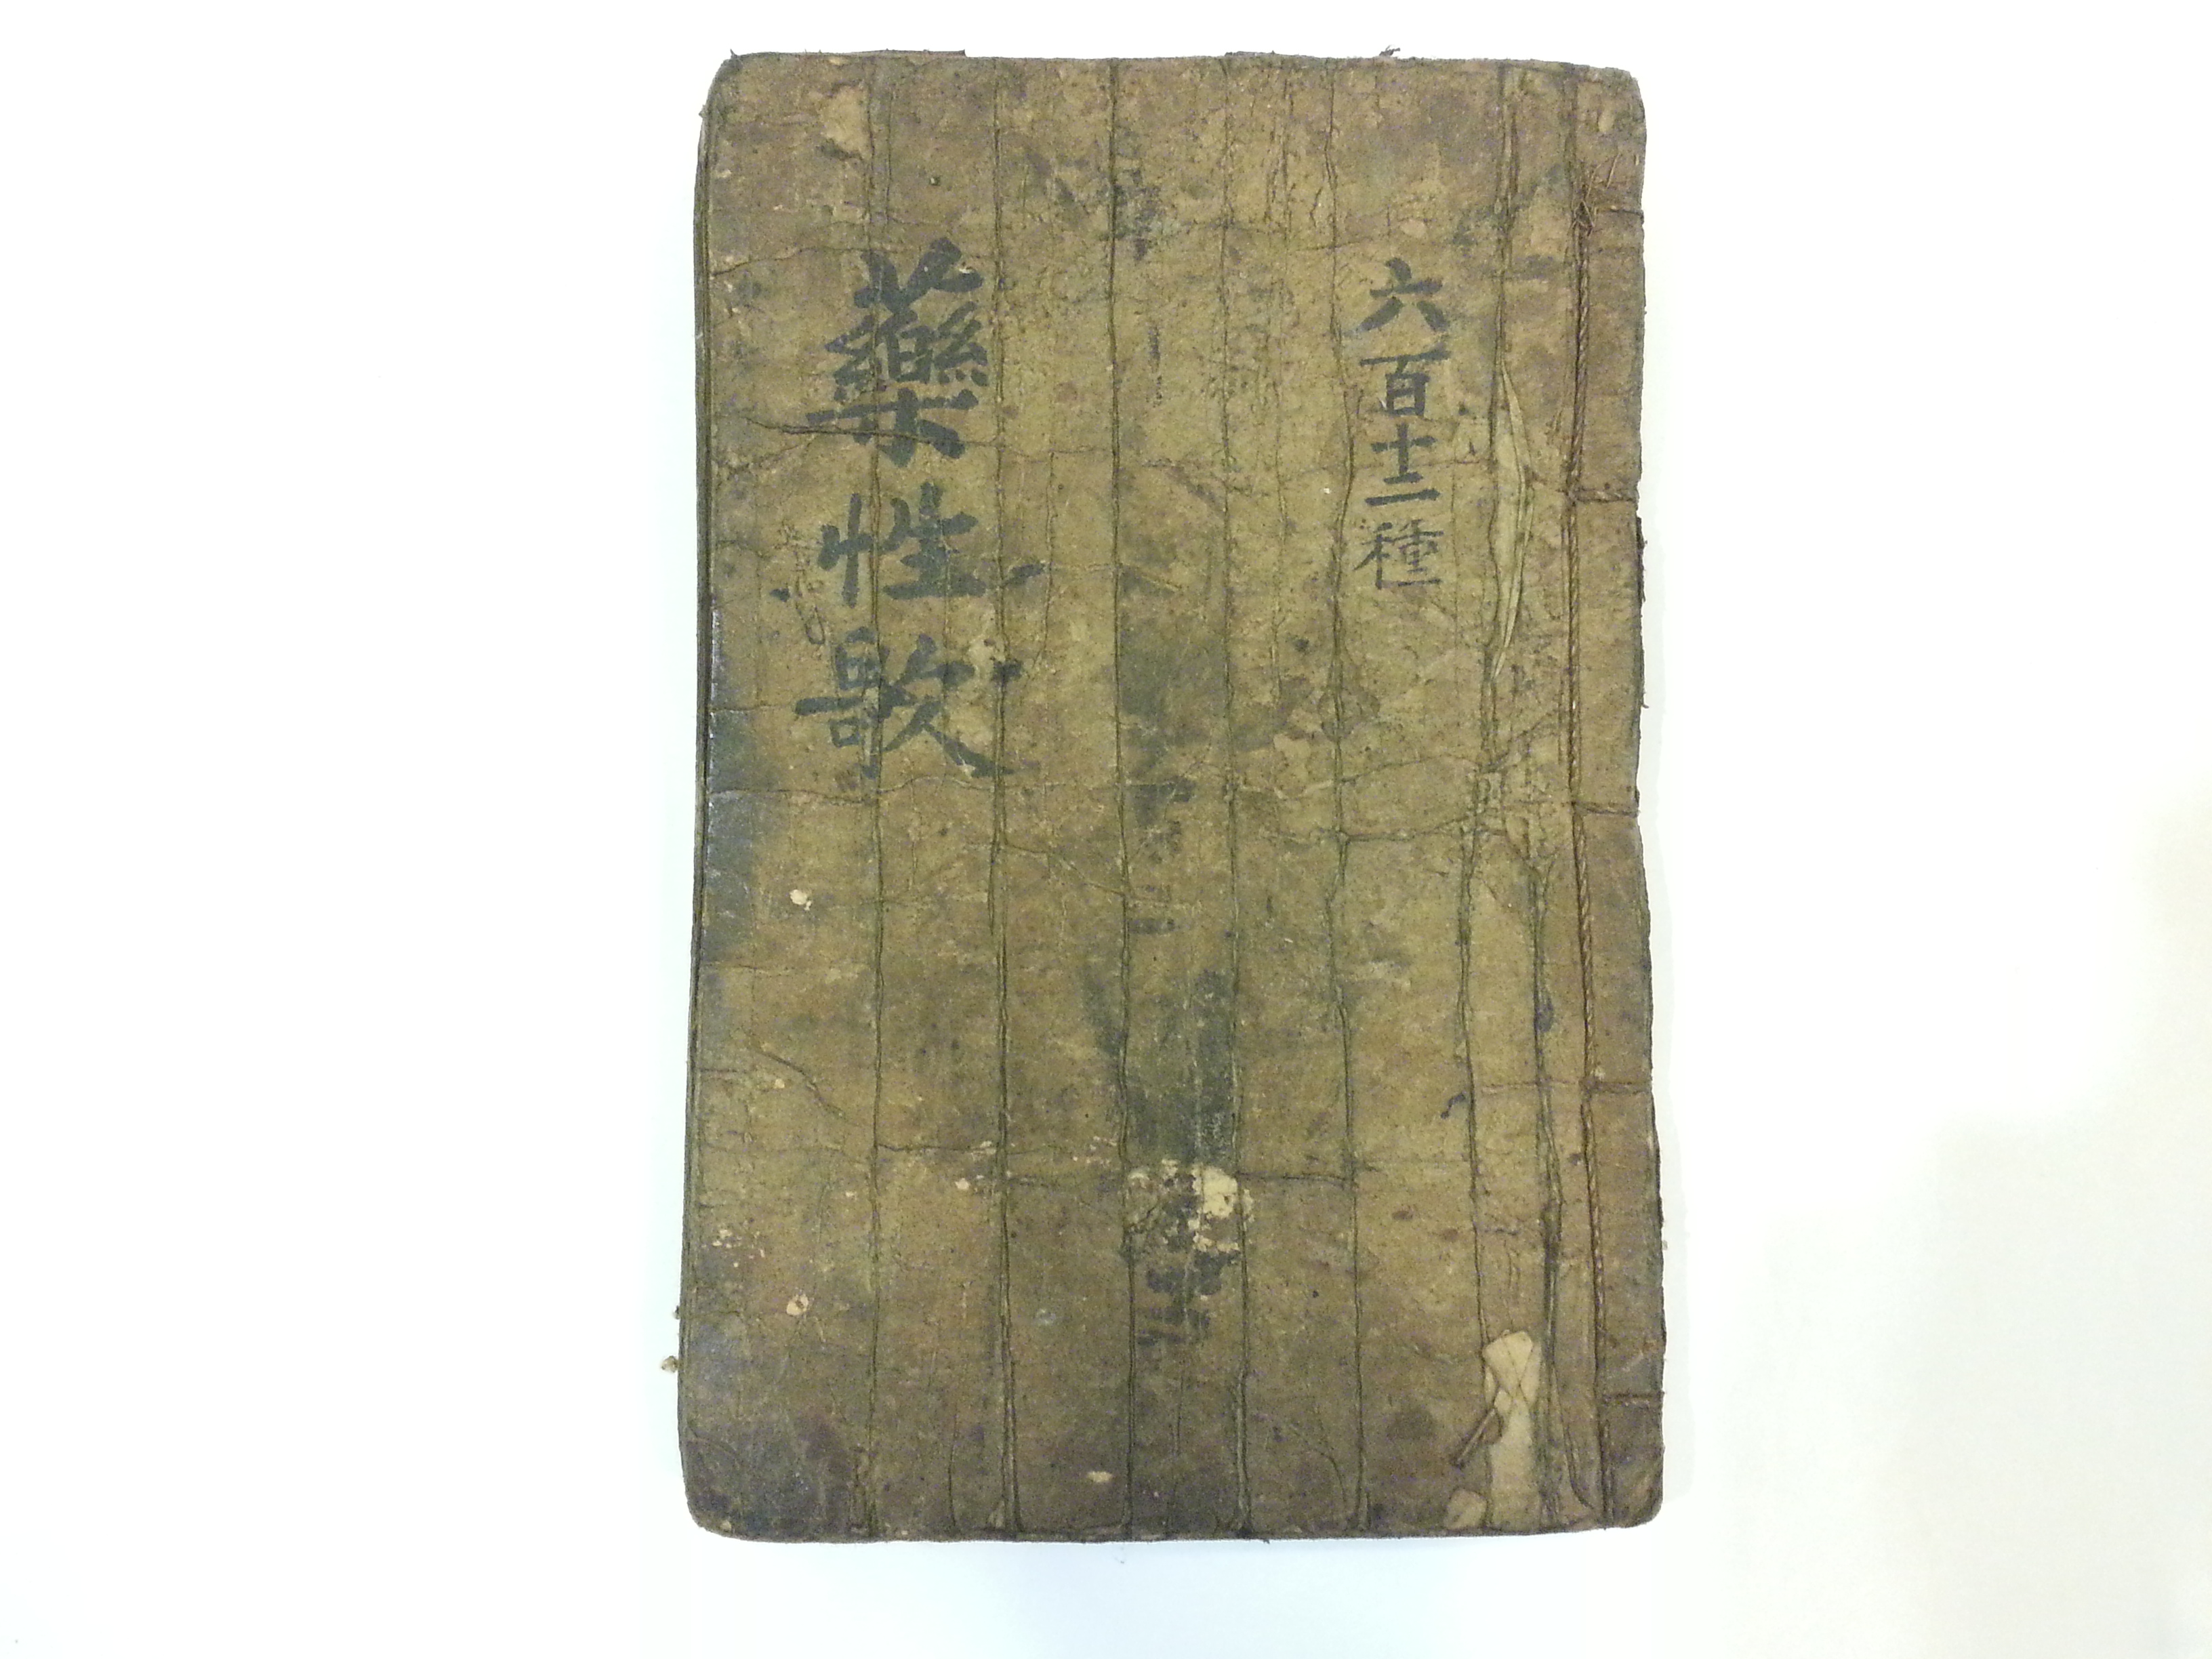 六百十二種
藥性歌